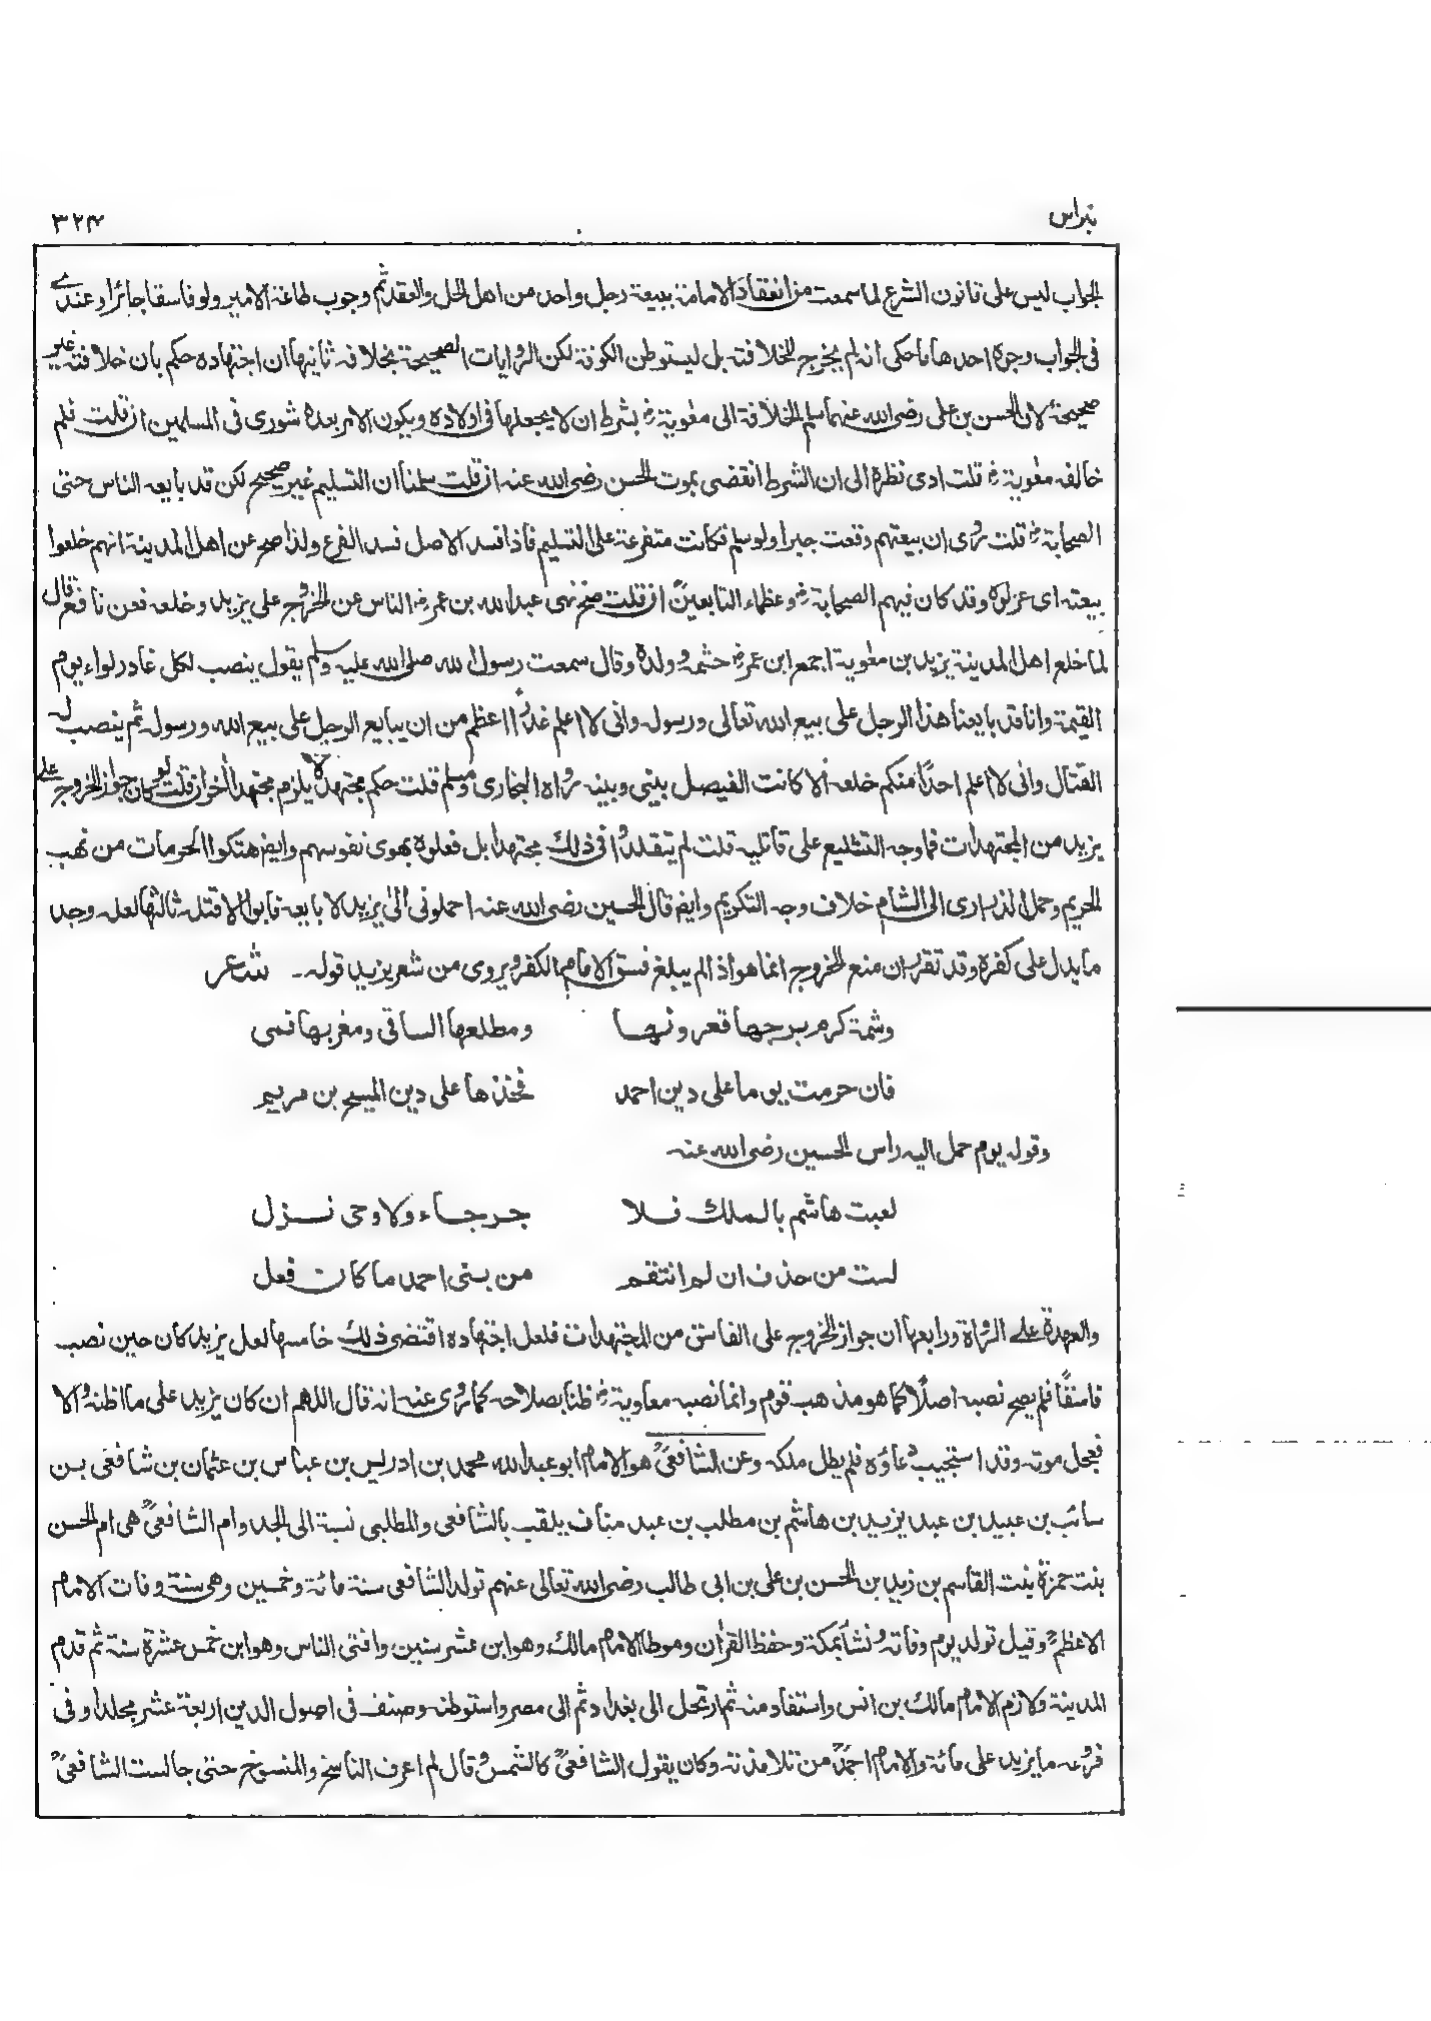 نبراس
٣٢٤
الجواب ليس على قانون الشرع لما سمعت من انعقاد الامامة ببيعة رجل واحد من اهل الحل والعقد ثم وجوب طاعة الامير ولو فاسقا جائرا وعندے
فى الجواب وجوه احدها ما حكى انه لم يخرج للخلافة بل ليستوطن الكوفة لكن الروايات الصحيحة بخلافه ثانيها ان اجتهاده حكم بان خلافته غير
صحيحة لان الحسن بن على رضى الله عنهما سلم الخلافة الى معٰوية رض بشرط ان لا يجعلها فى اولاده ويكون الامر بعده شورى فى المسلمين ان قلت فلم
خالفه معٰوية رض قلت ادى نظره الى ان الشرط انقضى بموت الحسن رضى الله عنه ان قلت سلمنا ان التسليم غير صحيح لكن قد بايعه الناس حتى
الصحابة رض قلت روى ان بيعتهم وقعت جبرا ولو سلم فكانت متفرعة على التسليم فاذا فسد الاصل فسد الفرع ولذا صح عن اهل المدينة انهم خلعوا
بيعته اى عزلوه وقد كان فيهم الصحابة رض وعظماء التابعين ان قلت صح نهى عبد الله بن عمر رض الناس عن الخروج على يزيد وخلعه فعن نافع قال
لما خلع اهل المدينة يزيد بن معٰوية اجمع ابن عمر رض حشمه وولده وقال سمعت رسول الله صلى الله عليه وسلم يقول ينصب لكل غادر لواء يوم
القيٰمة وانا قد بايعنا هذا الرجل على بيع الله تعالى ورسوله وانى لا اعلم غدرا اعظم من ان يبايع الرجل على بيع الله ورسوله ثم ينصب له
القتال وانى لا اعلم احدًا منكم خلعه الا كانت الفيصل بينى وبينه رواه البخارى ومسلم قلت حكم مجتهد لا يلزم مجتهدا اٰخر ان قلت لو كان جواز الخروج على
يزيد من المجتهدات فما وجه التشنيع على قاتليه قلت لم يتقلدوا فى ذلك مجتهدا بل فعلوه بهوى نفوسهم وايض هتكوا الحرمات من نهب
الحريم وحمل الذرارى الى الشام خلاف وجه التكريم وايض قال الحسين رضى الله عنه احملونى الى يزيد لابايعه فابوا الا قتله ثالثها لعله وجد
ما يدل على كفره وقد تقرر ان منع الخروج انما هو اذا لم يبلغ فسق الامام الكفر ويروى من شعر يزيد قوله ۔ شعر
وشمة كرم برجها قعر ونها ومطلعها الساقى ومغربها فمى
فان حرمت يوما على دين احمد فخذها على دين المسيح بن مريم
وقوله يوم حمل اليه راس الحسين رضى الله عنه
لعبت هاشم بالملك فلا جرجاء ولا وحى نزل
لست من حذف ان لم انتقم من بنى احمد ما كان فعل
والعهدة على الرواة ورابعها ان جواز الخروج على الفاسق من المجتهدات فلعل اجتهاده اقتضى ذلك خامسها لعل يزيد كان حين نصب
فاسقًا فلم يصح نصبه اصلًا كما هو مذهب قوم وانما نصبه معاوية رض ظنا بصلاحه كما روى عنه انه قال اللهم ان كان يزيد على ما اظنه والا
فعجل موته وقد استجيب دعاؤه فلم يطل ملكه وعن الشافعىؒ هو الامام ابو عبد الله محمد بن ادريس بن عباس بن عثمان بن شافعى بن
سائب بن عبيد بن عبد يزيد بن هاشم بن مطلب بن عبد مناف يلقب بالشافعى والمطلبى نسبة الى الجد وام الشافعىؒ هى ام الحسن
بنت حمزة بنت القاسم بن زيد بن الحسن بن على بن ابى طالب رضى الله تعالى عنهم تولد الشافعى سنة مائة وخمسين وهى سنة وفات الامام
الاعظمؒ وقيل تولد يوم وفاته ونشأ بمكة وحفظ القراٰن وموطا الامام مالك وهو ابن عشر سنين وافتى الناس وهو ابن خمس عشرة سنة ثم قدم
المدينة ولازم الامام مالك بن انس واستفاد منه ثم ارتحل الى بغداد ثم الى مصر واستوطنه وصنف فى اصول الدين اربعة عشر مجلدا وفى
فروعه ما يزيد على مائة والامام احمدؒ من تلامذته وكان يقول الشافعىؒ كالشمس وقال لم اعرف الناسخ والمنسوخ حتى جالست الشافعىؒ